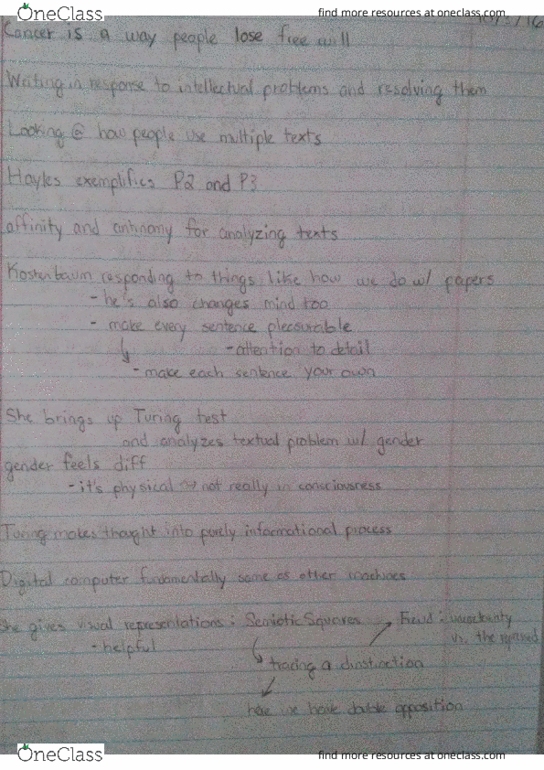 OneClass
find more resources at oneclass.com
Cancer is a way people lose free will
Writing in response to intellectual problems and resolving them
Looking @ how people use multiple texts
Hayles exemplifies P2 and P3
affinity and antinomy for analyzing texts
Kostenbaum responding to things like how we do w/ papers
- he's also changes mind too
- make every sentence plecourable
- attention to detail
- make each sentence your own
She brings up Turing test
and analyzes textual problem w/ gender
gender feels diff
- it's physical → not really in consciousness
Turing makes thought into purely informational process
Digital computer fundamentally same as other machines
She gives visual representations: Semiotic Squares → Freud: uncertainty
- helpful
vs. the
tracing a distinction
here we have double opposition
OneClass
find more resources at oneclass.com